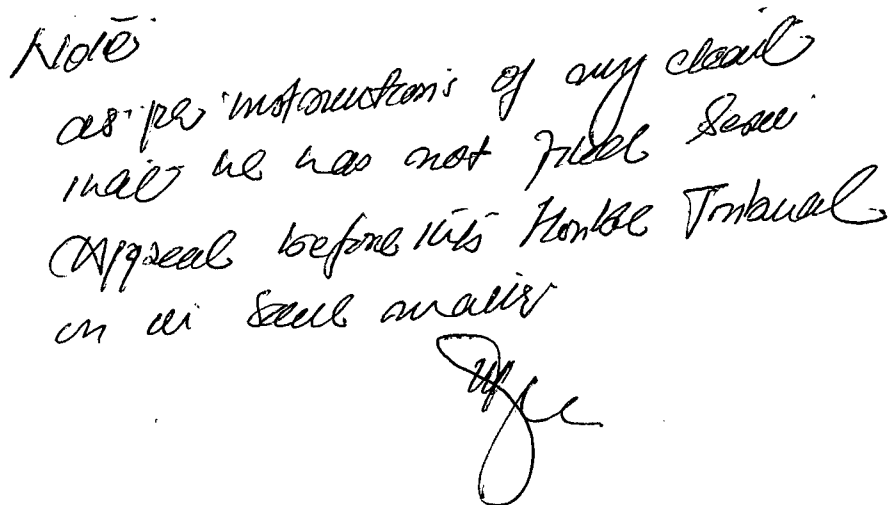 Note
as per instructions of my client
that he has not filed same
Appeal before this Honble Tribunal
in the same matter